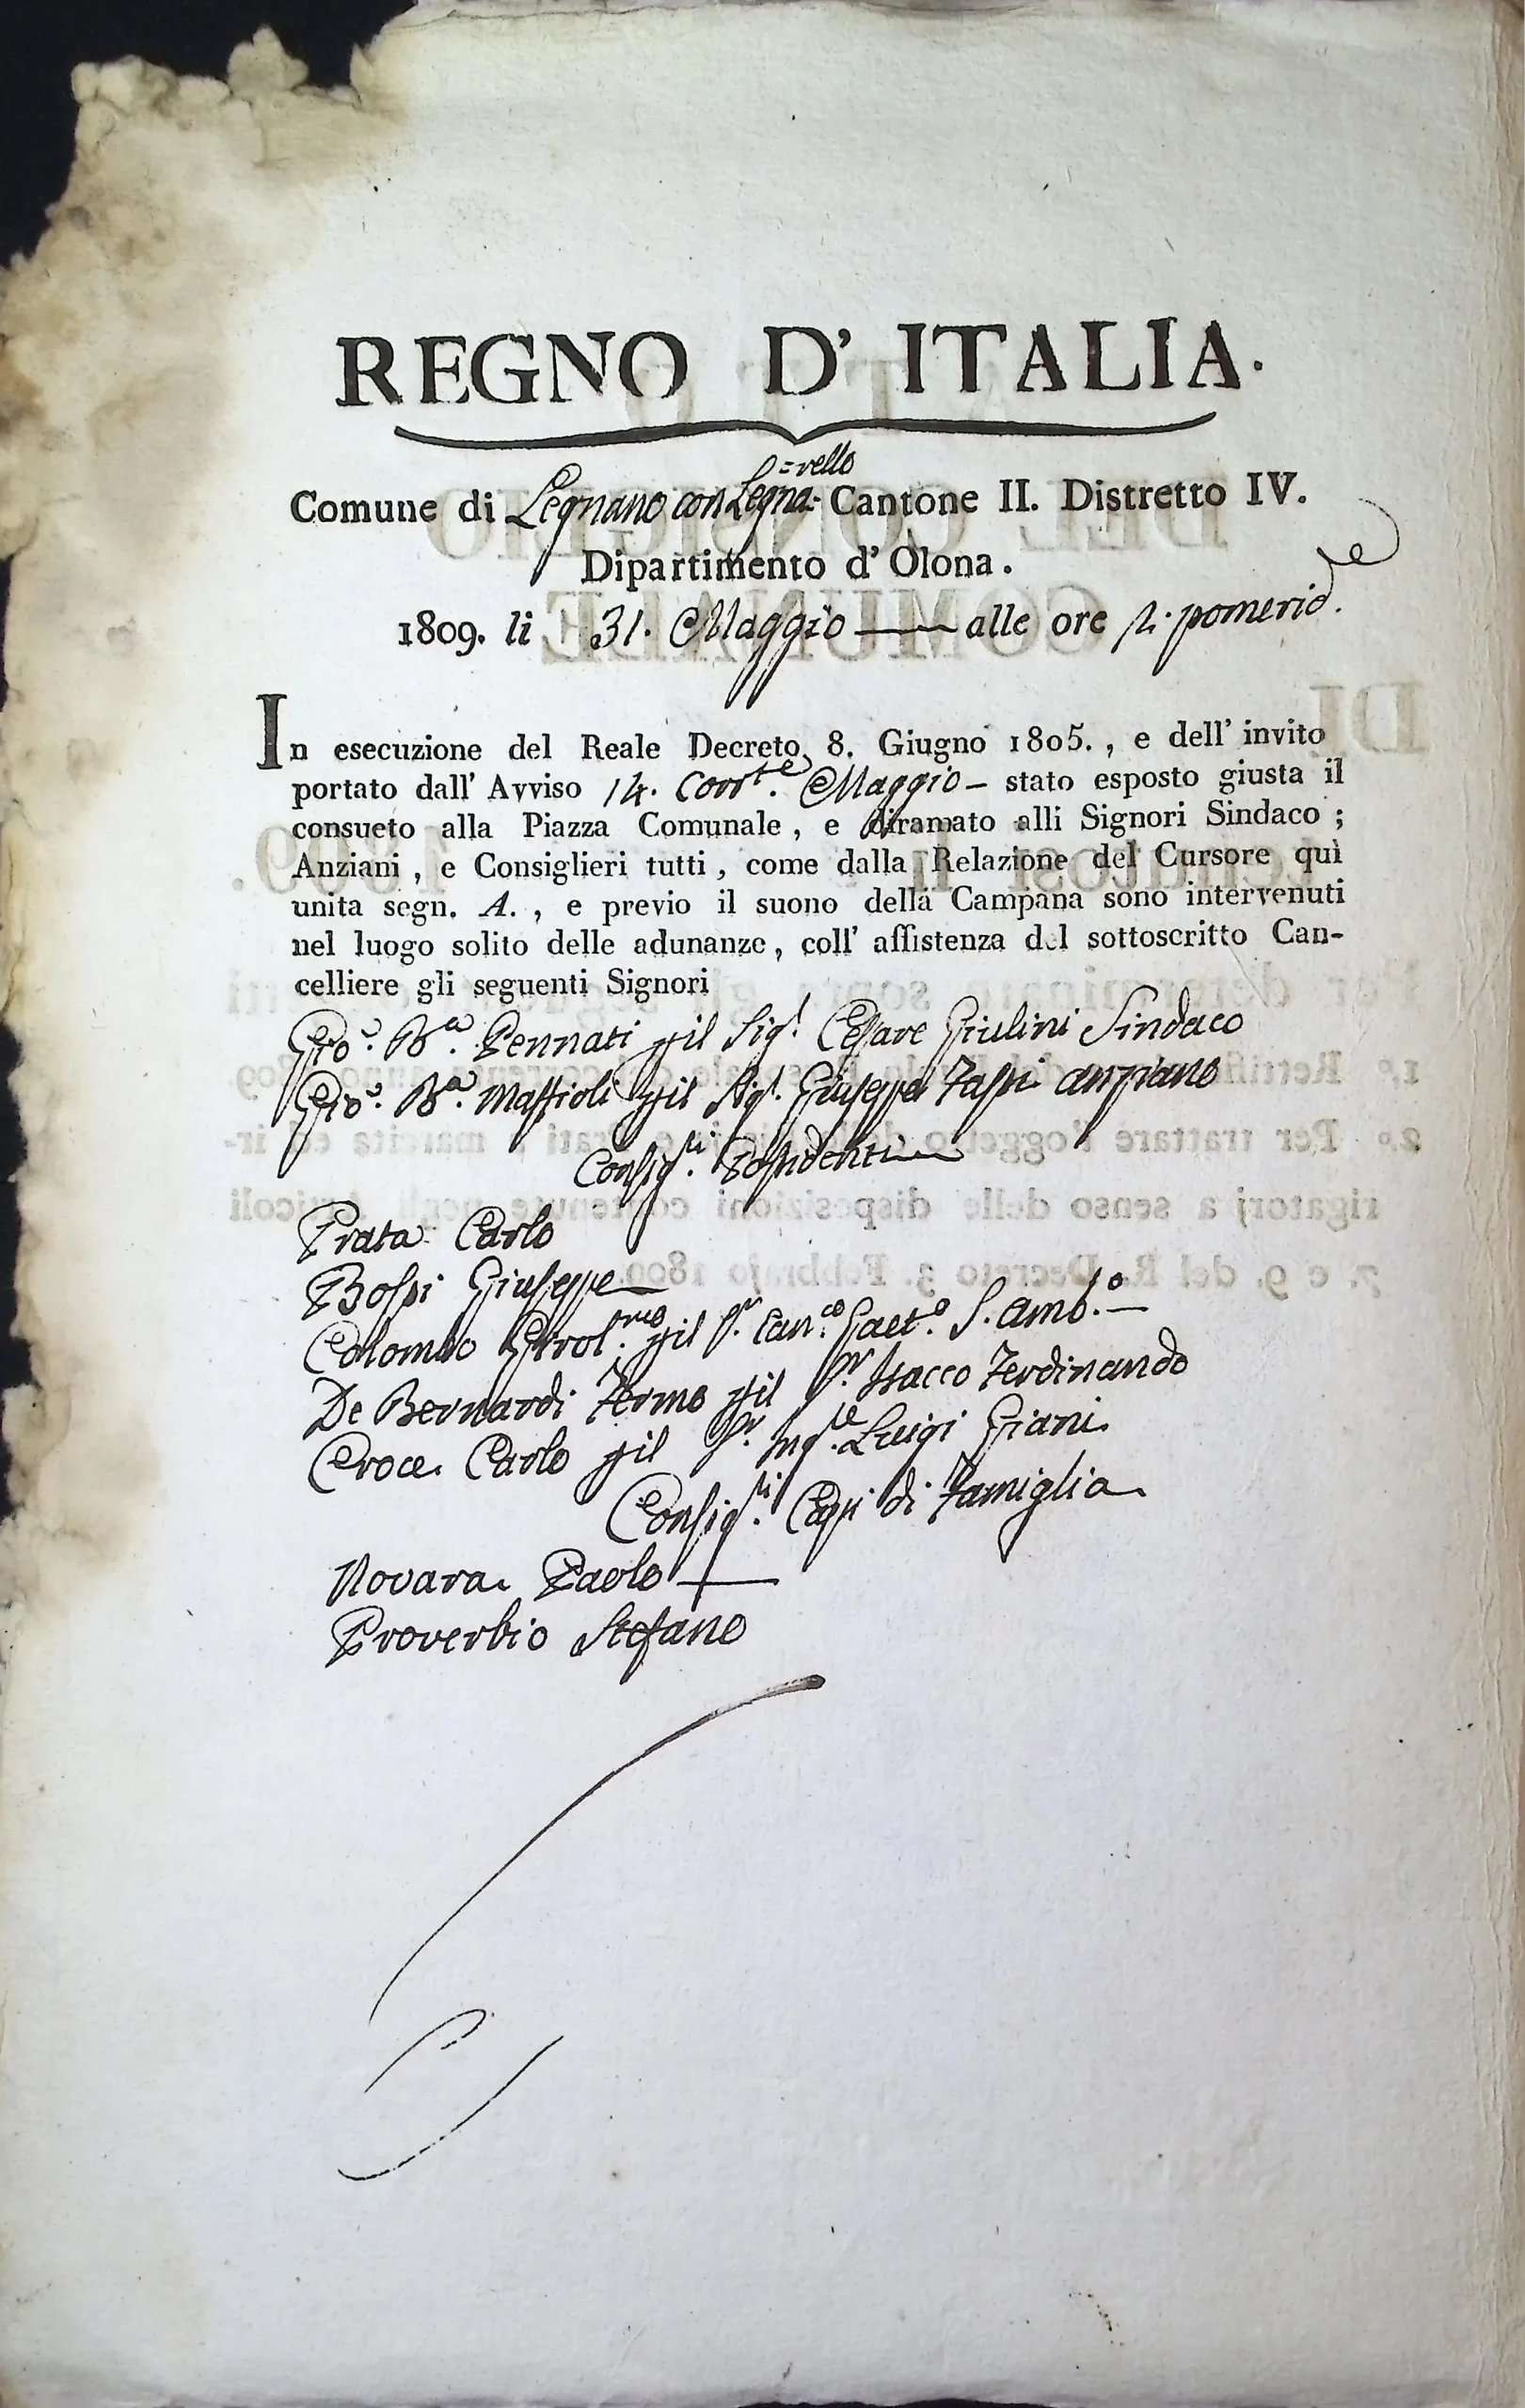 REGNO D' ITALIA.
=rello
Comune di Legnano con Legna- Cantone II. Distretto IV.
Dipartimento d' Olona.
1809. li 31. Maggio — alle ore pomerid.e
In esecuzione del Reale Decreto 8. Giugno 1805., e dell' invito
portato dall' Avviso 14. Corr.te Maggio — stato esposto giusta il
consueto alla Piazza Comunale, e diramato alli Signori Sindaco;
Anziani, e Consiglieri tutti, come dalla Relazione del Cursore quì
unita segn. A., e previo il suono della Campana sono intervenuti
nel luogo solito delle adunanze, coll' assistenza del sottoscritto Can-
celliere gli seguenti Signori
Gio. Ba. Pennati pil Sig.r Cesare Giulini Sindaco
Gio. Ba. Maffioli pil Sig.r Giuseppe Fassi anziano
Consig.ri Possidenti
Prata Carlo
Bossi Giuseppe —
Colombo Girol.mo pil S.r Can.co Gaet.o S. Amb.o —
De Bernardi Fermo pil S.r Isacco Ferdinando
Croce Carlo pil S.r Ing.re Luigi Giani
Consig.ri Capi di Famiglia
Novara Paolo —
Proverbio Stefano